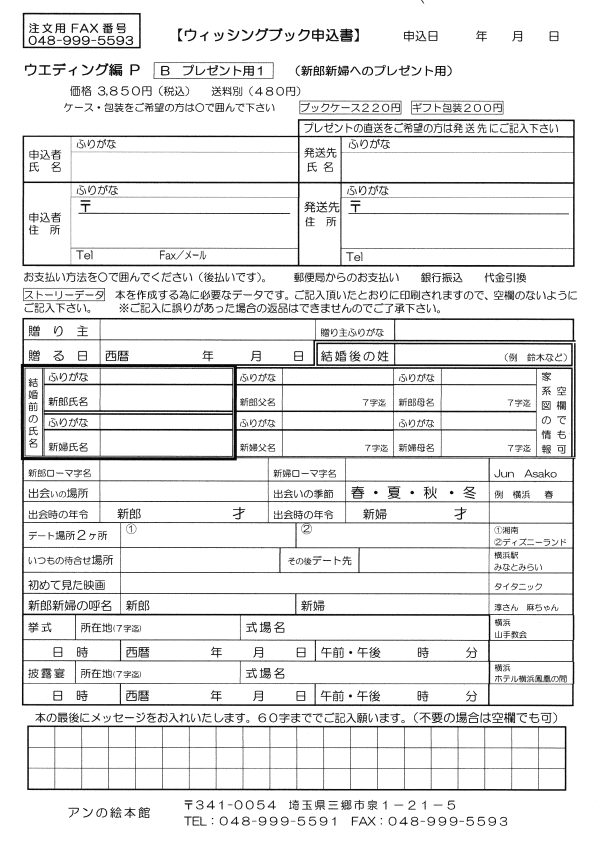 注文用 FAX 番号
048-999-5593
【ウィッシングブック申込書】
申込日　　年　　月　　日
ウエディング編 P　B　プレゼント用1　（新郎新婦へのプレゼント用）
価格 3,850円（税込）　送料別（480円）
ケース・包装をご希望の方は〇で囲んで下さい　ブックケース220円　ギフト包装200円
プレゼントの直送をご希望の方は発送先にご記入下さい
申込者氏名　ふりがな　発送先氏名　ふりがな
申込者住所　ふりがな　〒　発送先住所　ふりがな　〒
Tel　Fax／メール　Tel
お支払い方法を〇で囲んでください（後払いです）。　郵便局からのお支払い　銀行振込　代金引換
ストーリーデータ　本を作成する為に必要なデータです。ご記入頂いたとおりに印刷されますので、空欄のないように
ご記入下さい。　※ご記入に誤りがあった場合の返品はできませんのでご了承下さい。
贈り主　贈り主ふりがな
贈る日　西暦　年　月　日　結婚後の姓　（例　鈴木など）
結婚前の氏名　ふりがな　ふりがな　ふりがな　家系図の情報　空欄でも可
新郎氏名　新郎父名　7字迄　新郎母名　7字迄
ふりがな　ふりがな　ふりがな
新婦氏名　新婦父名　7字迄　新婦母名　7字迄
新郎ローマ字名　新婦ローマ字名　Jun　Asako
出会いの場所　出会いの季節　春・夏・秋・冬　例　横浜　春
出会時の年令　新郎　才　出会時の年令　新婦　才
デート場所2ヶ所　①　②　①湘南
②ディズニーランド
いつもの待合せ場所　その後デート先　横浜駅
みなとみらい
初めて見た映画　タイタニック
新郎新婦の呼名　新郎　新婦　淳さん　麻ちゃん
挙式　所在地(7字迄)　式場名　横浜
山手教会
日時　西暦　年　月　日　午前・午後　時　分
披露宴　所在地(7字迄)　式場名　横浜
ホテル横浜鳳凰の間
日時　西暦　年　月　日　午前・午後　時　分
本の最後にメッセージをお入れいたします。60字まででご記入願います。（不要の場合は空欄でも可）
アンの絵本館
〒341-0054　埼玉県三郷市泉1－21－5
TEL：048-999-5591　FAX：048-999-5593